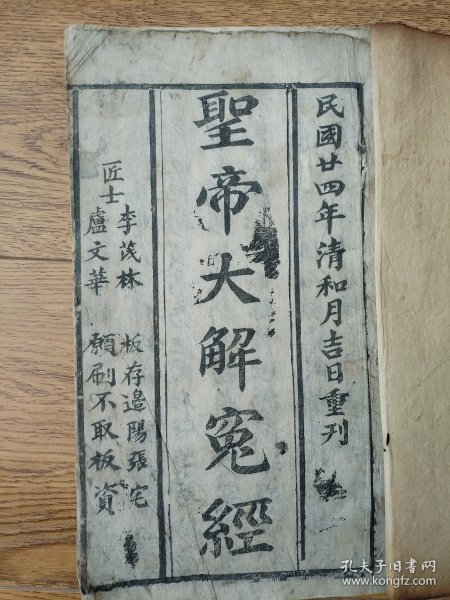 民國廿四年清和月吉日重刊
聖帝大解冤經
匠士
李茂林
盧文華
板存邊陽張宅
願刷不取板資
孔夫子旧书网
www.kongfz.com